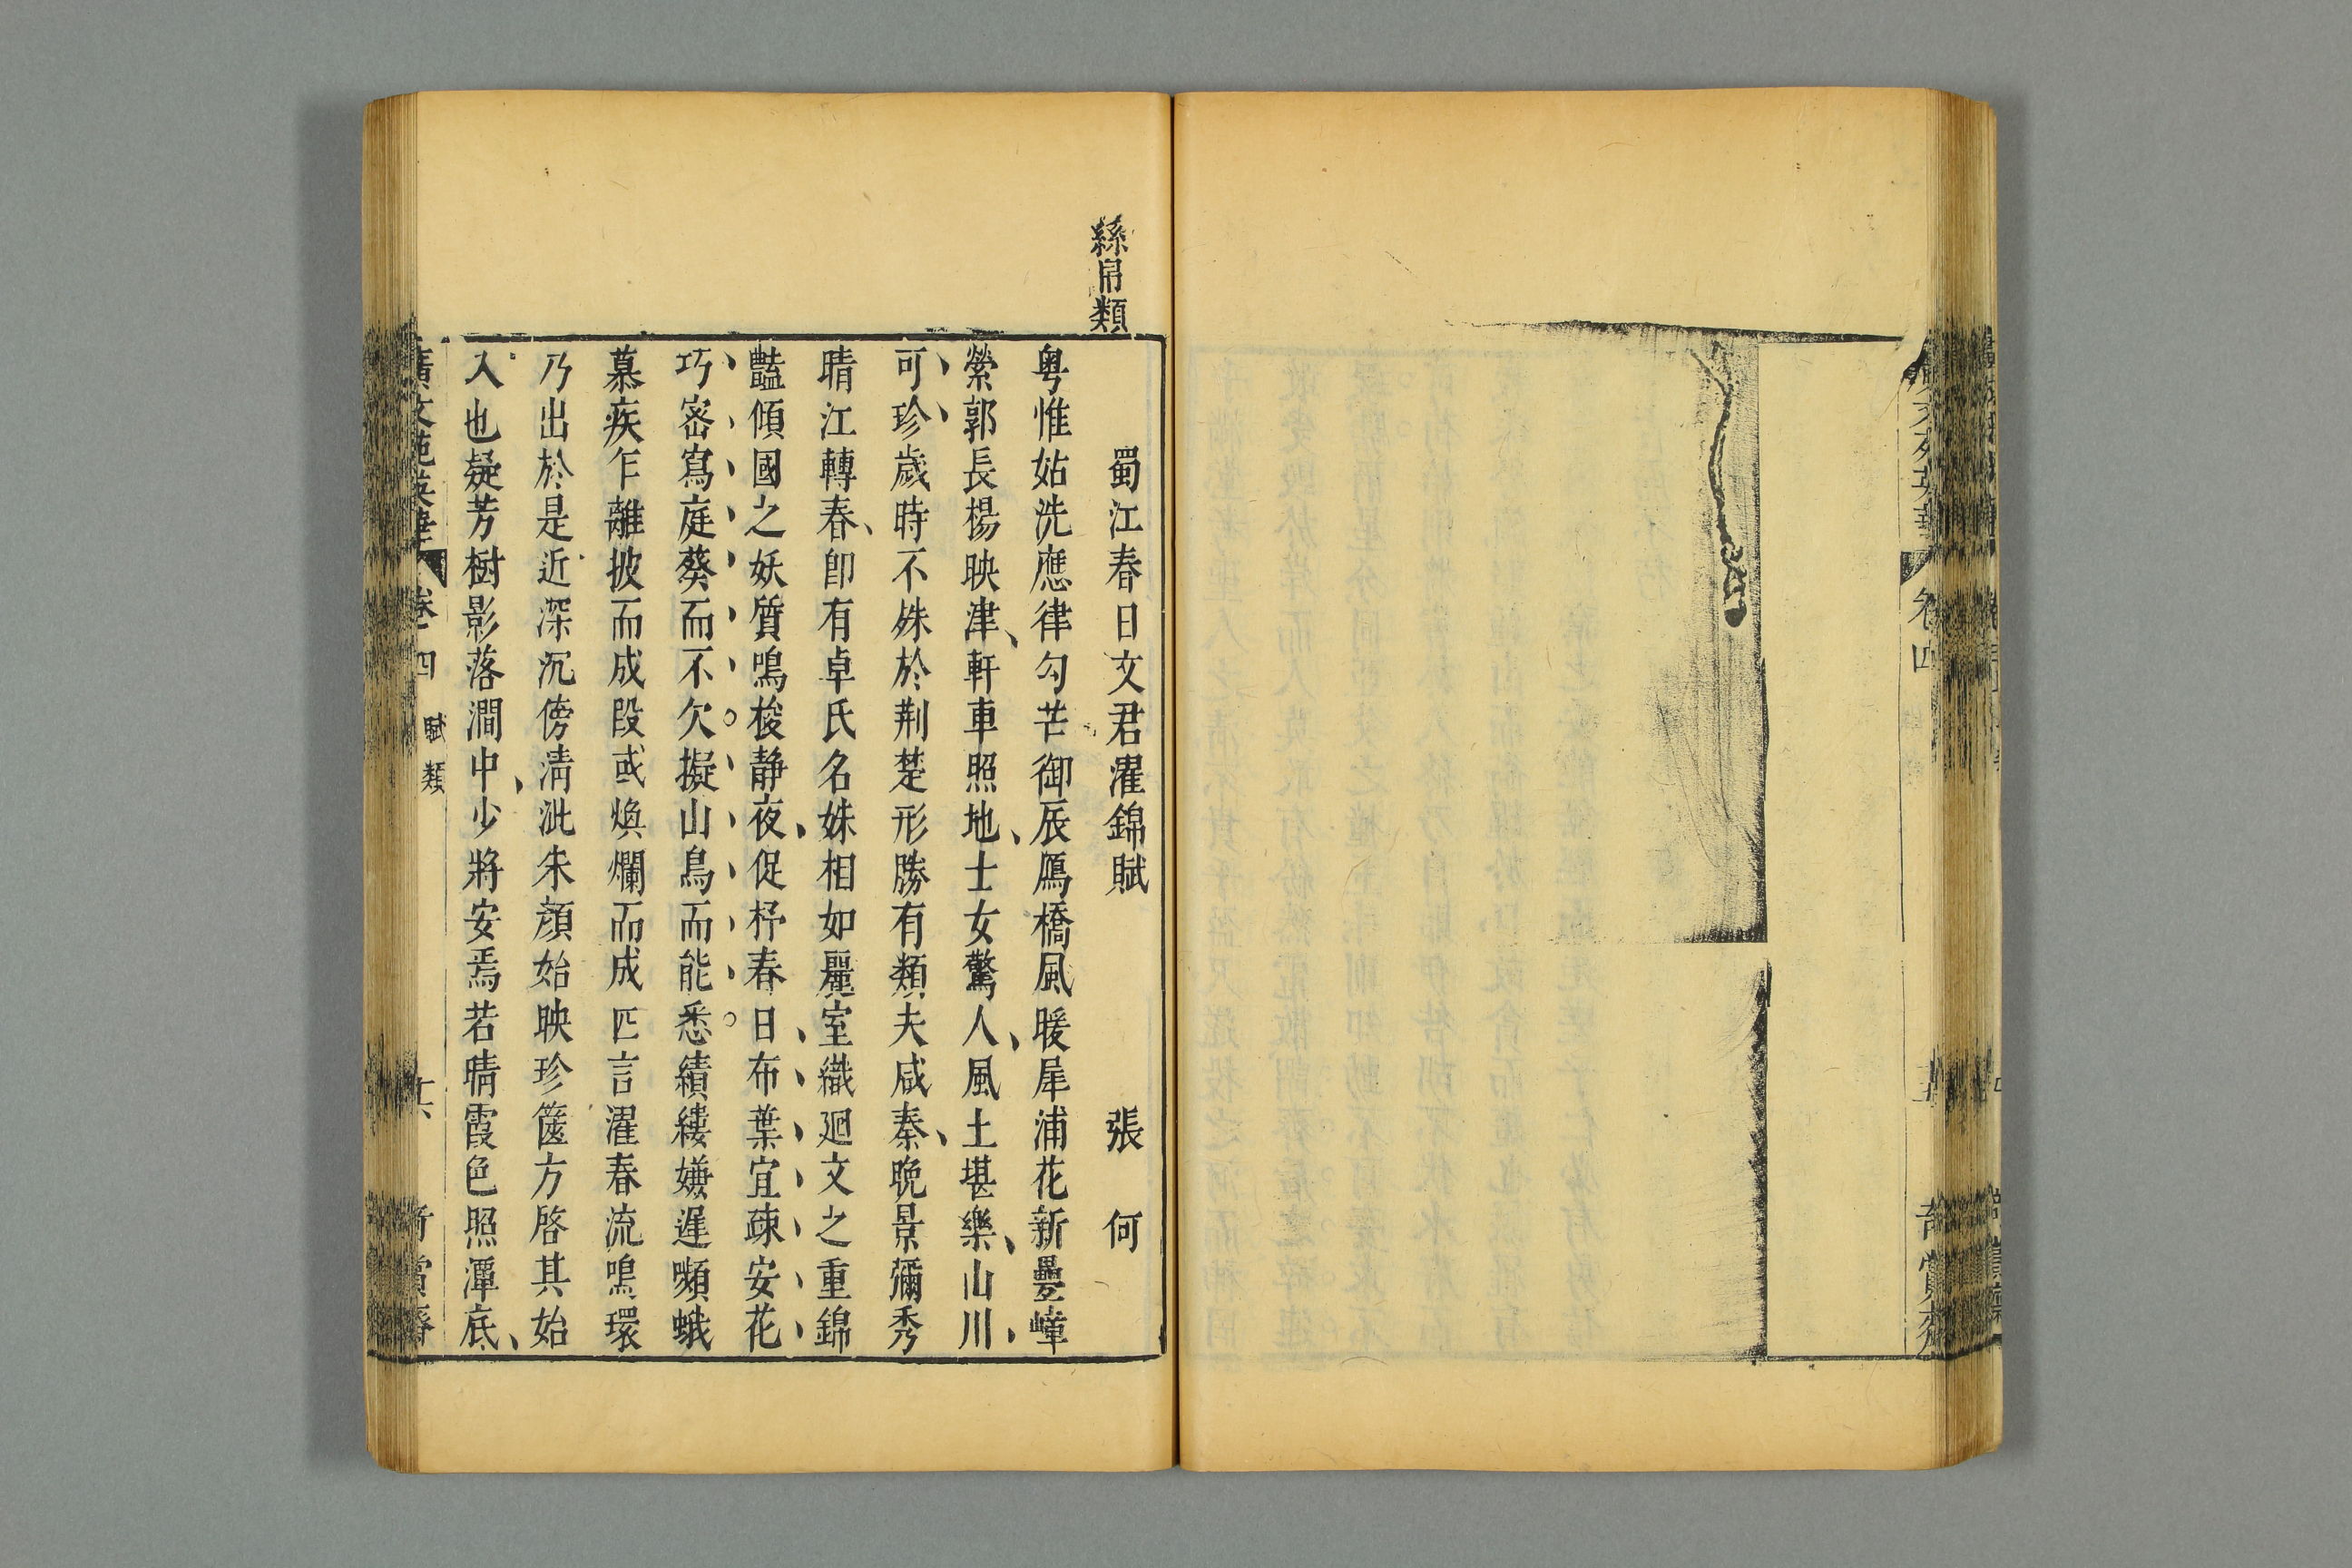 絲帛類
蜀江春日文君濯錦賦　張　何
粤惟姑洗應律勾芒御辰鴈橋風暖犀浦花新疊嶂
縈郭長楊映津軒車照地士女驚人風土堪樂山川
可珍歲時不殊於荆楚形勝有類夫咸秦晩景彌秀
晴江轉春卽有卓氏名姝相如麗室織廻文之重錦
豔傾國之妖質鳴梭静夜促杼春日布葉宜疎安花
巧宻寫庭葵而不欠擬山鳥而能悉績縷嫌遲嚬蛾
慕疾乍離披而成段或煥爛而成匹言濯春流鳴環
乃出於是近深沉傍淸泚朱顔始映珍篋方啓其始
入也疑芳樹影落澗中少將安焉若晴霞色照潭底
廣文苑英華　卷四　賦類　十六　奇賞齋
卷四
奇賞齋